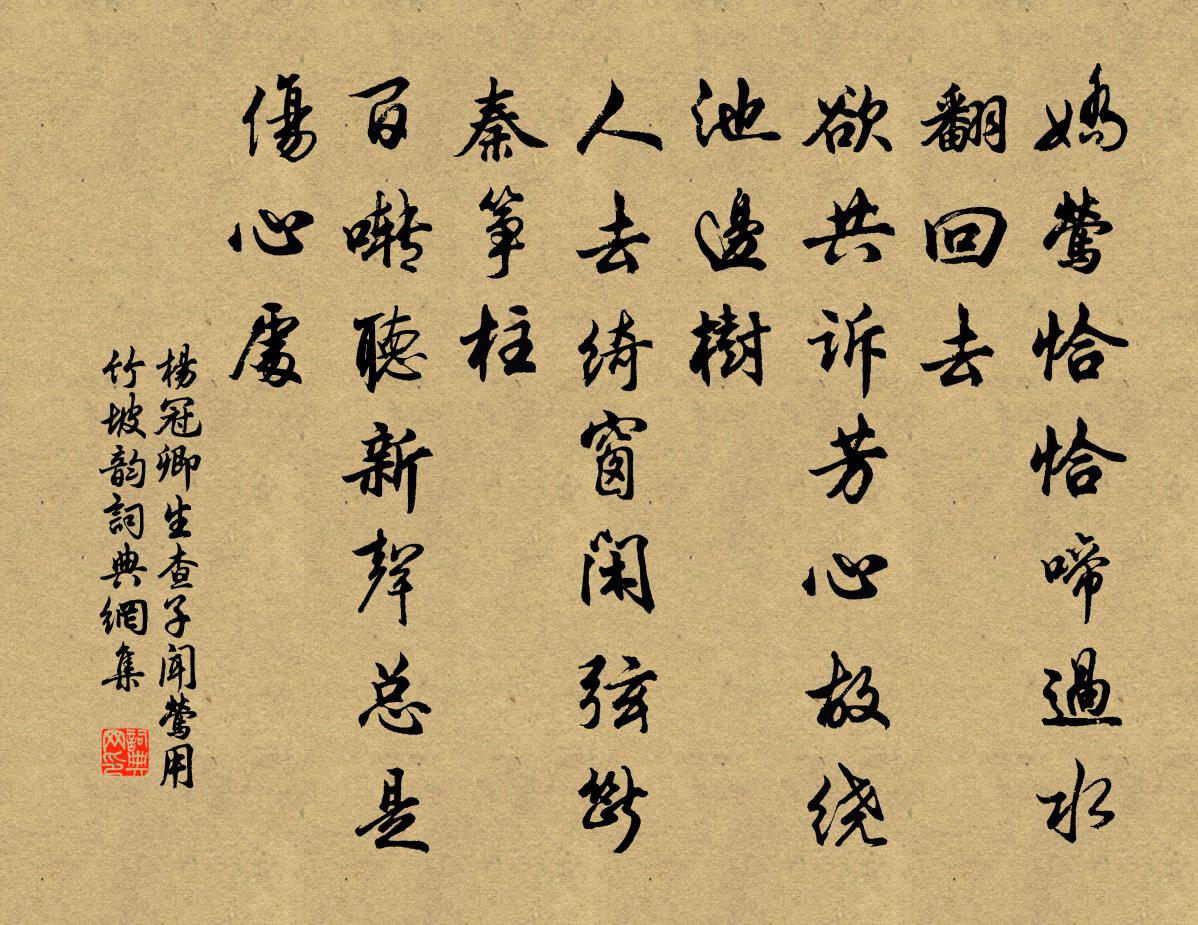 嬌鶯恰恰啼過水
翻回去
欲共诉芳心故绕
池邊樹
人去绮窗闲弦斷
秦箏柱
百囀聽新聲总是
傷心處
楊冠卿生查子闻鶯用
竹坡韵詞典網集
詞典
网印